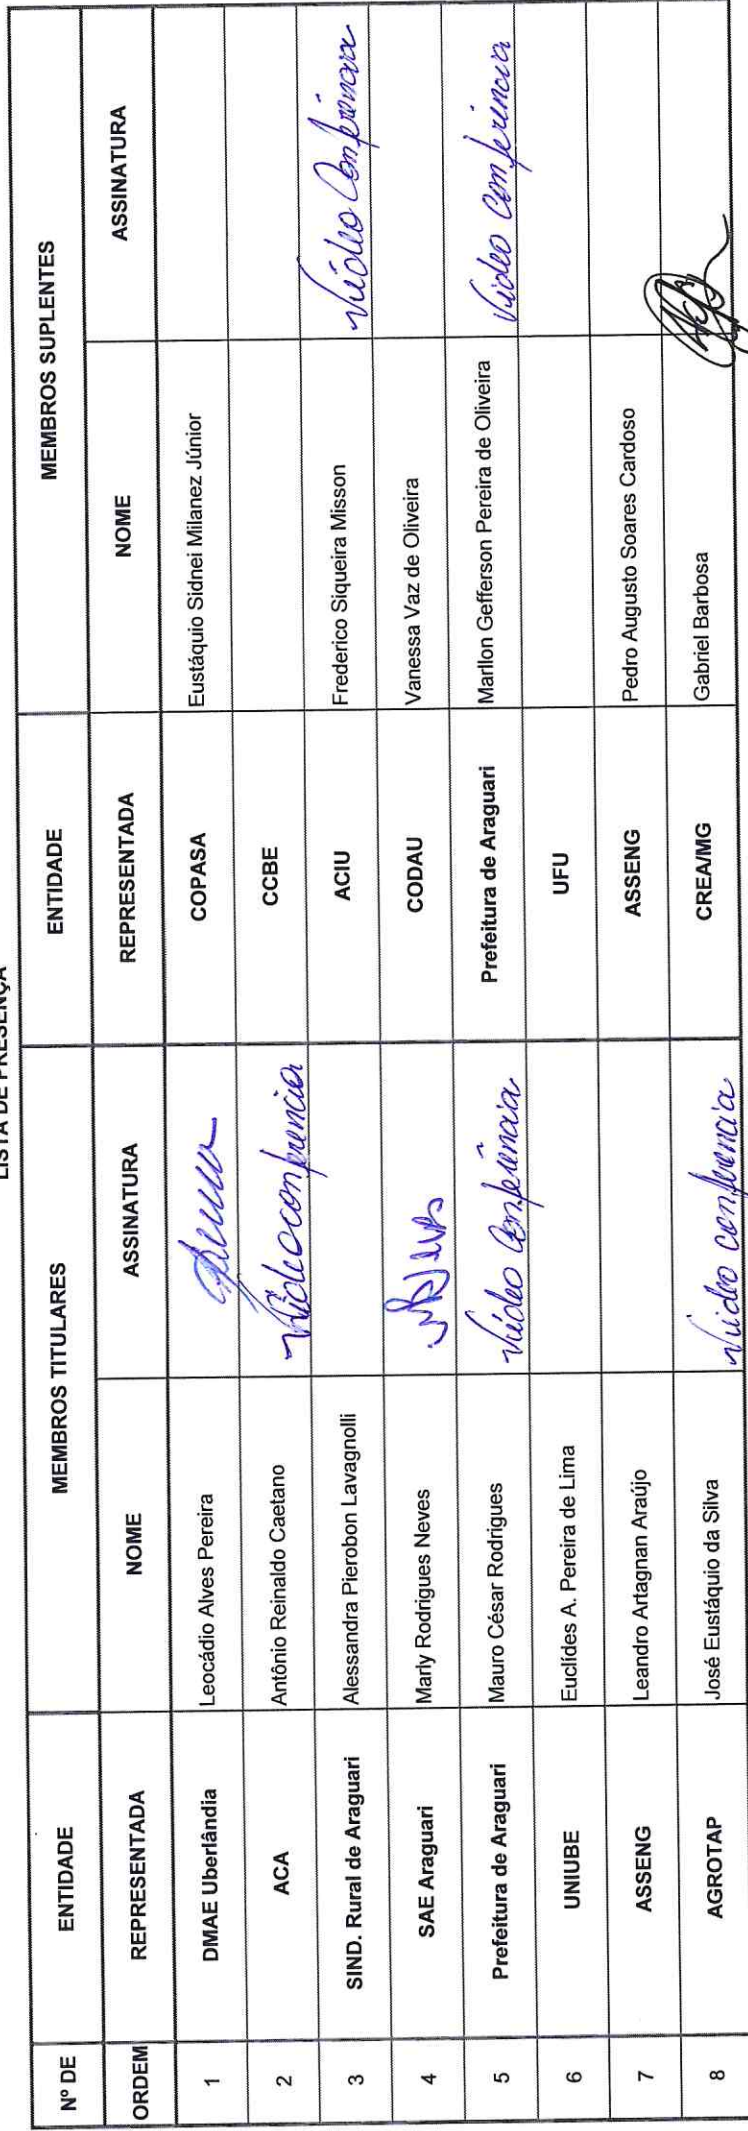 LISTA DE PRESENÇA
Nº DE ORDEM | ENTIDADE REPRESENTADA | MEMBROS TITULARES | ENTIDADE REPRESENTADA | MEMBROS SUPLENTES
NOME | ASSINATURA | NOME | ASSINATURA
1 | DMAE Uberlândia | Leocádio Alves Pereira | | COPASA | Eustáquio Sidnei Milanez Júnior |
2 | ACA | Antônio Reinaldo Caetano | Videoconferencia | CCBE | |
3 | SIND. Rural de Araguari | Alessandra Pierobon Lavagnolli | | ACIU | Frederico Siqueira Misson | Vídeo Conferência
4 | SAE Araguari | Marly Rodrigues Neves | | CODAU | Vanessa Vaz de Oliveira |
5 | Prefeitura de Araguari | Mauro César Rodrigues | Vídeo Conferência | Prefeitura de Araguari | Marllon Gefferson Pereira de Oliveira | Vídeo Conferência
6 | UNIUBE | Euclídes A. Pereira de Lima | | UFU | |
7 | ASSENG | Leandro Artagnan Araújo | | ASSENG | Pedro Augusto Soares Cardoso |
8 | AGROTAP | José Eustáquio da Silva | Vídeo conferência | CREA/MG | Gabriel Barbosa |